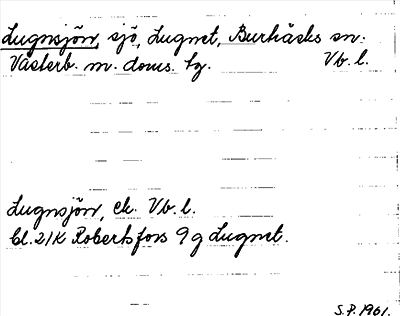 Lugnsjön, sjö, Lugnet, Burträsks sn.
Västerb. m. doms. tg. Vb. l.
Lugnsjön, ek. Vb. l.
Bl. 21K Robertsfors 9g Lugnet.
S.P. 1961.